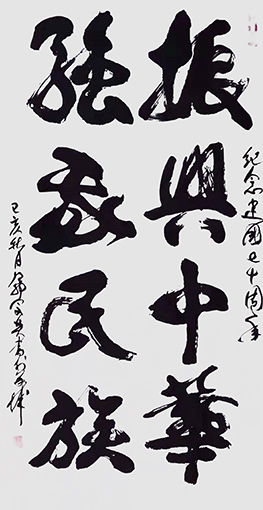 纪念建國七十周年
振興中華
强我民族
己亥秋月